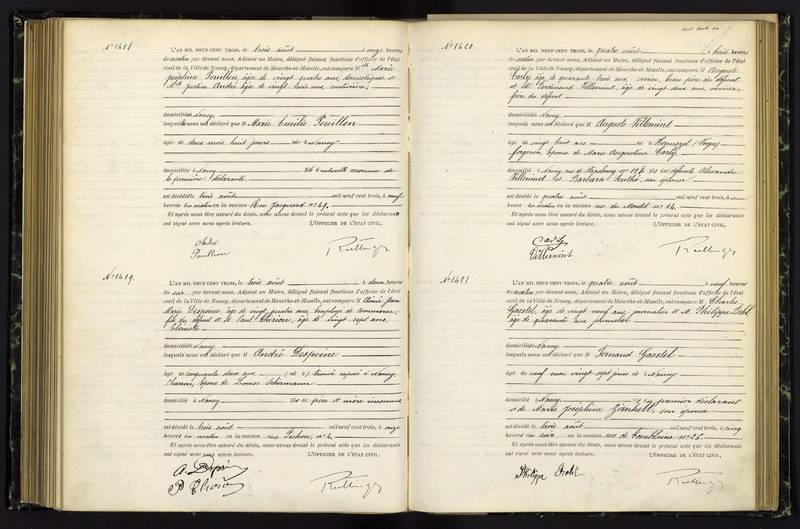 N° 1418
L'AN MIL NEUF CENT TROIS, le trois août à onze heures
du matin par devant nous, Adjoint au Maire, délégué faisant fonctions d'officier de l'état
civil de la Ville de Nancy, département de Meurthe-et-Moselle, ont comparu M lle Marie
Joséphine Pouillon, âgée de vingt quatre ans, domestique et
M lle Justine André âgée de vingt trois ans couturière,
domiciliées à Nancy
lesquels nous ont déclaré que M Marie Emilie Pouillon
âgée de deux mois huit jours née à Nancy
domiciliée à Nancy fille naturelle reconnue de
la première déclarante
est décédée le trois août mil neuf cent trois, à neuf
heures du matin en la maison Rue Jacquard n° 49.
Et après nous être assuré du décès, nous avons dressé le présent acte que les déclarants
ont signé avec nous après lecture. L'OFFICIER DE L'ÉTAT CIVIL,
André
Pouillon
N° 1419.
L'AN MIL NEUF CENT TROIS, le trois août à deux heures
du soir par devant nous, Adjoint au Maire, délégué faisant fonctions d'officier de l'état
civil de la Ville de Nancy, département de Meurthe-et-Moselle, ont comparu M Aimé Jean
Marie Despoine, âgé de vingt quatre ans, employé de commerce,
fils du défunt et M. Paul Thirion, âgé de vingt sept ans,
domiciliés à Nancy
lesquels nous ont déclaré que M André Despoine
âgé de cinquante deux ans né à trouvé exposé à Nancy,
charron, époux de Louise Schirmann
domicilié à Nancy fils de père et mère inconnus
est décédé le trois août mil neuf cent trois, à onze
heures du matin en la maison rue Pichon, n° 4.
Et après nous être assuré du décès, nous avons dressé le présent acte que les déclarants
ont signé avec nous après lecture. L'OFFICIER DE L'ÉTAT CIVIL,
P Thirion
N° 1420.
L'AN MIL NEUF CENT TROIS, le quatre août à huit heures
du matin par devant nous, Adjoint au Maire, délégué faisant fonctions d'officier de l'état
civil de la Ville de Nancy, département de Meurthe-et-Moselle, ont comparu M Auguste
Carly, âgé de quarante trois ans, beau frère du défunt
et M. Ferdinand Villemint, âgé de vingt deux ans,
frère du défunt
domiciliés à Nancy
lesquels nous ont déclaré que M Auguste Villemint
âgé de vingt huit ans né à (Vosges)
forgeron, époux de Marie Augustine Carly.
domicilié à Nancy, rue de Strasbourg n° fils des défunts Alexandre
Villemint et Barbara son épouse
est décédé le quatre août mil neuf cent trois, à
heure du matin en la maison rue du Montet n° 14.
Et après nous être assuré du décès, nous avons dressé le présent acte que les déclarants
ont signé avec nous après lecture. L'OFFICIER DE L'ÉTAT CIVIL,
Carly
Villemint
N° 1421
L'AN MIL NEUF CENT TROIS, le quatre août à neuf heures
du matin par devant nous, Adjoint au Maire, délégué faisant fonctions d'officier de l'état
civil de la Ville de Nancy, département de Meurthe-et-Moselle, ont comparu M Charles
Gaestel, âgé de vingt neuf ans, journalier et M. Philippe Bohl,
âgé de quarante ans
domiciliés à Nancy
lesquels nous ont déclaré que M Fernand Gaestel
âgé de neuf mois vingt sept jours né à Nancy
domicilié à Nancy, fils du premier déclarant
et de Marie Joséphine son épouse
est décédé le trois août mil neuf cent trois, à cinq
heures du soir en la maison rue de Tomblaine n° 26.
Et après nous être assuré du décès, nous avons dressé le présent acte que les déclarants
ont signé avec nous après lecture. L'OFFICIER DE L'ÉTAT CIVIL,
Philippe Bohl